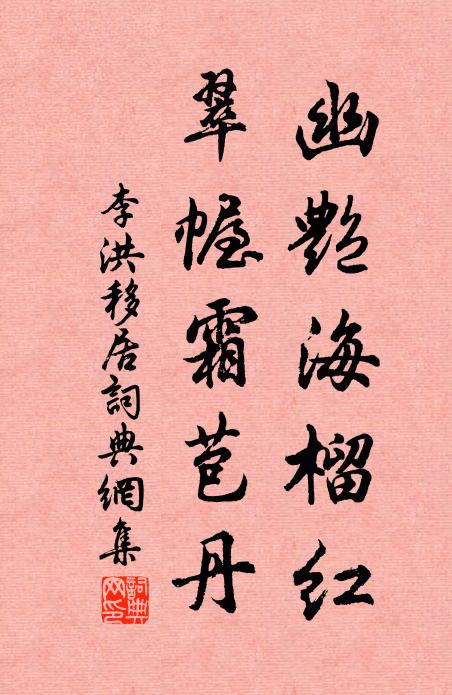 幽艷海榴紅
翠幄霜苞丹
李洪移居詞典網集
詞典网印